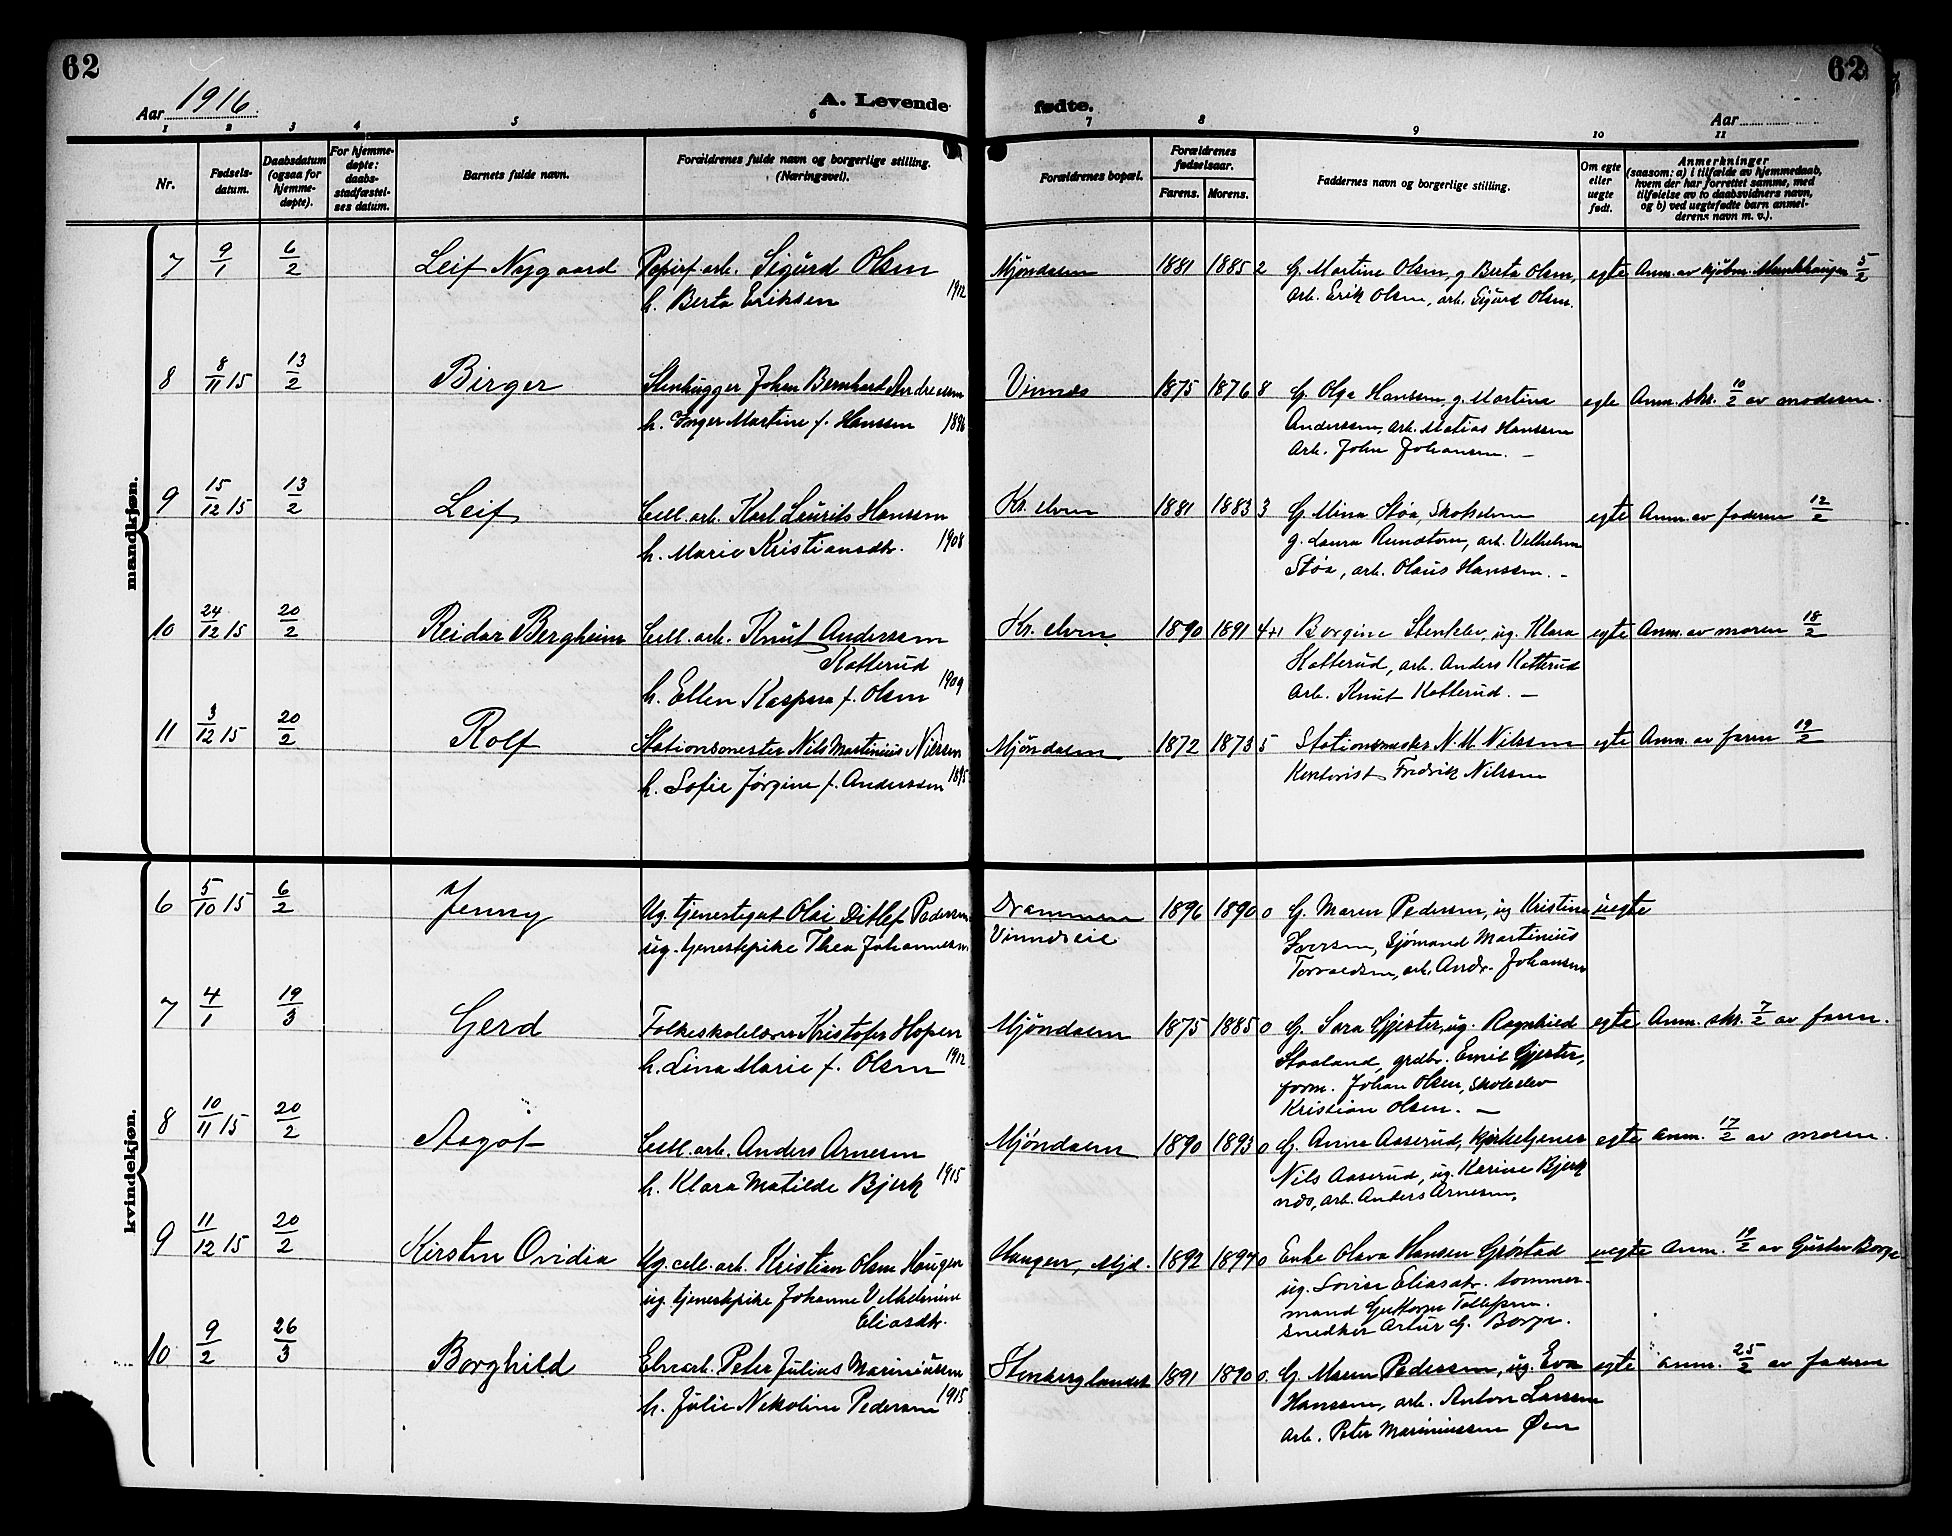 62
62
Aar 1916
A. Levende
fødte.
Aar
1 2 3 4 5 6 7 8 9 10 11
Nr.
Fødsels-
datum.
Daabsdatum
(ogsaa for
hjemme-
døpte).
For hjemme-
døpte:
daabs-
stadfæstel-
ses datum.
Barnets fulde navn.
Forældrenes fulde navn og borgerlige stilling.
(Næringsvei).
Forældrenes bopæl.
Forældrenes
fødselsaar.
Farens. Morens.
Faddernes navn og borgerlige stilling.
Om egte
eller
uegte
født.
Anmerkninger
(saasom: a) i tilfælde av hjemmedaab,
hvem der har forrettet samme, med
tilføielse av to daabsvidners navn,
og b) ved uegtefødte barn anmel-
derens navn m. v.).
mandkjøn.
7 9/1 6/2 Leif Nygaard Papirf. arb. Sigurd Olsen Mjøndalen 1881 1885 2 G. Martine Olsen, g. Berta Olsen, egte Anm. av kjøbm. Munkhaugen 5/2
h. Berta Eriksen 1912 arb. Erik Olsen, arb. Sigurd Olsen.
8 8/11 15 13/2 Birger Stenhugger Johan Bernhard Andreassen Vinnæs 1875 1876 8 G. Olga Hansen, g. Martina egte Anm. skr. 10/2 av moderen.
h. Inger Martine f. Hanssen 1896 Anderssen, arb. Matias Hanssen
arb. John Johansen. –
9 15/12 15 13/2 Leif Cell. arb. Karl Laurits Hansen Kr. elven 1881 1883 3 G. Mina Støa, Skotselven egte Anm. av faderen 12/2
h. Marie Kristiansdtr. 1908 g. Laura Rundtom, arb. Vilhelm
Støa, arb. Olaus Hanssen. –
10 24/12 15 20/2 Reidar Bergheim Cell. arb. Knut Anderssen Kr. elven 1890 1891 4+1 Borgine Stenklev, ug. Klara egte Anm. av moren 18/2
Kotterud Kotterud, arb. Anders Kotterud
h. Ellen Kaspara f. Olsen 1909 arb. Knut Kotterud. –
11 3/12 15 20/2 Rolf Stationsmester Nils Martinius Nilssen Mjøndalen 1872 1873 5 Stationsmester N. M. Nilssen egte Anm. av faren 19/2
h. Sofie Jørgine f. Anderssen 1895 Kontorist Fredrik Nilssen
kvindekjøn.
6 5/10 15 6/2 Jenny Ug. tjenestegut Olai Ditlef Pedersen Drammen 1896 1890 0 G. Maren Pedersen, ug Kristine uegte
ug. tjenestepike Thea Johannesen Vinnæseie Iversen, Sjømand Martinius
Torvaldsen, arb. Andr. Johansen
7 4/1 19/3 Gerd Folkeskolelærer Kristofer Hopen Mjøndalen 1875 1885 0 G. Sara Gjester, ug. Ragnhild egte Anm. skr. 7/2 av faren.
h. Lina Marie f. Olsen 1912 Staaland, grdbr. Emil Gjester,
form. Johan Olsen, skoleelev
Kristian Olsen. –
8 10/11 15 20/2 Aagot Cell. arb. Anders Arnesen Mjøndalen 1890 1893 0 G. Anna Aaserud, kirketjener egte anm. 17/2 av moren.
h. Klara Matilde Bjerk 1915 Nils Aaserud, ug. Karine Bjerk
næs, arb. Anders Arnesen,
9 11/12 15 20/2 Kirsten Ovidia Ug. cell. arb. Kristian Olsen Haugen Haugen, Mjd. 1892 1897 0 Enke Olava Hansen Grøstad uegte Anm. 19/2 av Gustav Borge
ug. tjenestepike Johanne Vilhelmine ug. Lovise Eliasdtr. tømmer-
Eliasdtr. mand Guttorm Tollefsen.
snedker Artur G. Borge.
10 9/2 26/3 Borghild Elvearb. Peter Julius Mariniussen Stenberglandet 1891 1890 0 G. Maren Pederssen, ug. Eva egte anm. 25/2 av faderen
h. Julie Nikoline Pedersen 1915 Hanssen, arb. Anton Larssen
arb. Peter Mariniussen Øen